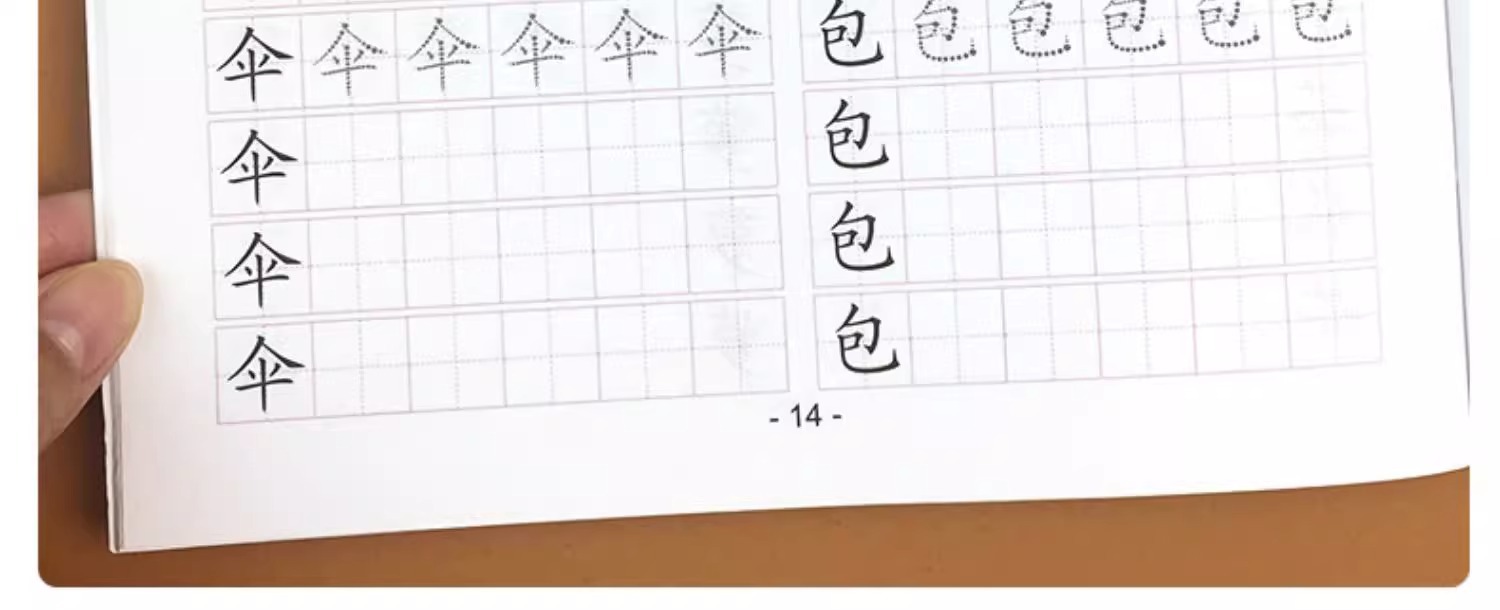 伞伞伞伞伞伞 包包包包包包
伞 包
伞 包
伞 包
- 14 -